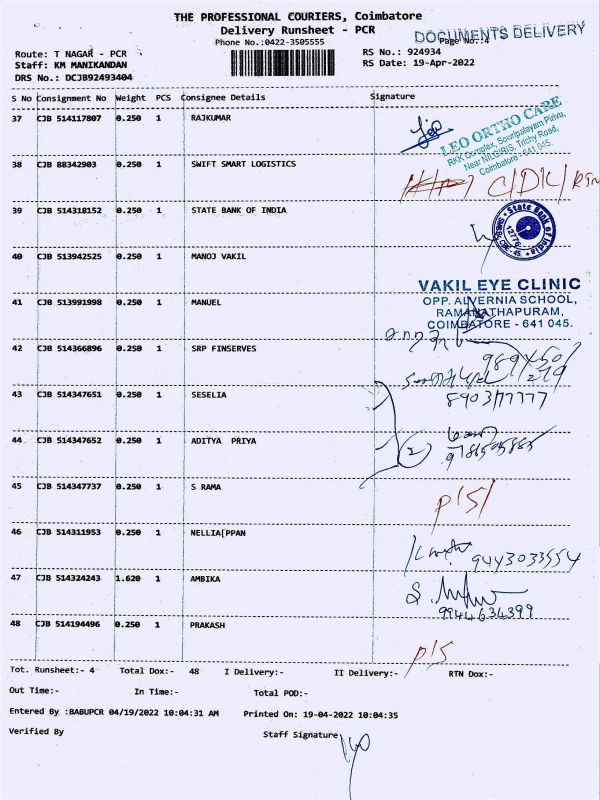 THE PROFESSIONAL COURIERS, Coimbatore
Delivery Runsheet - PCR
DOCUMENTS DELIVERY
Phone No.:0422-3505555
Page No.:4
Route: T NAGAR - PCR
RS No.: 924934
Staff: KM MANIKANDAN
RS Date: 19-Apr-2022
DRS No.: DCJB92493404
S No Consignment No Weight PCS Consignee Details Signature
37 CJB 514117807 0.250 1 RAJKUMAR
LEO ORTHO CARE
RKK Complex, Sowripalayam Pirivu,
Near NILGIRIS, Trichy Road,
Coimbatore - 641 045.
38 CJB 88342903 0.250 1 SWIFT SMART LOGISTICS
39 CJB 514318152 0.250 1 STATE BANK OF INDIA
State Bank of India
12776
40 CJB 513942525 0.250 1 MANOJ VAKIL
VAKIL EYE CLINIC
OPP. ALVERNIA SCHOOL,
RAMANATHAPURAM,
COIMBATORE - 641 045.
41 CJB 513991998 0.250 1 MANUEL
42 CJB 514366896 0.250 1 SRP FINSERVES
43 CJB 514347651 0.250 1 SESELIA
44 CJB 514347652 0.250 1 ADITYA PRIYA
2
45 CJB 514347737 0.250 1 S RAMA
P/S/
46 CJB 514311953 0.250 1 NELLIA[PPAN
9443033554
47 CJB 514324243 1.620 1 AMBIKA
9944634399
48 CJB 514194496 0.250 1 PRAKASH
P/S
Tot. Runsheet:- 4 Total Dox:- 48 I Delivery:- II Delivery:- RTN Dox:-
Out Time:- In Time:- Total POD:-
Entered By :BABUPCR 04/19/2022 10:04:31 AM Printed On: 19-04-2022 10:04:35
Verified By Staff Signature